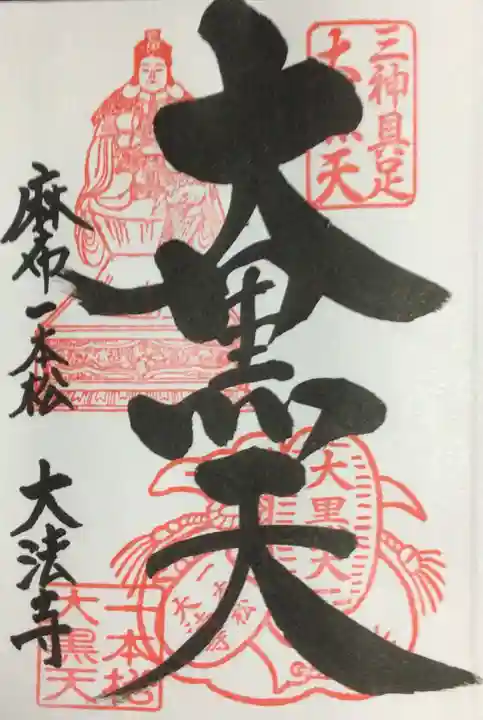 三神具足
大黒天
大黒天
麻布一本松 大法寺
大黒天
一本松
大黒天